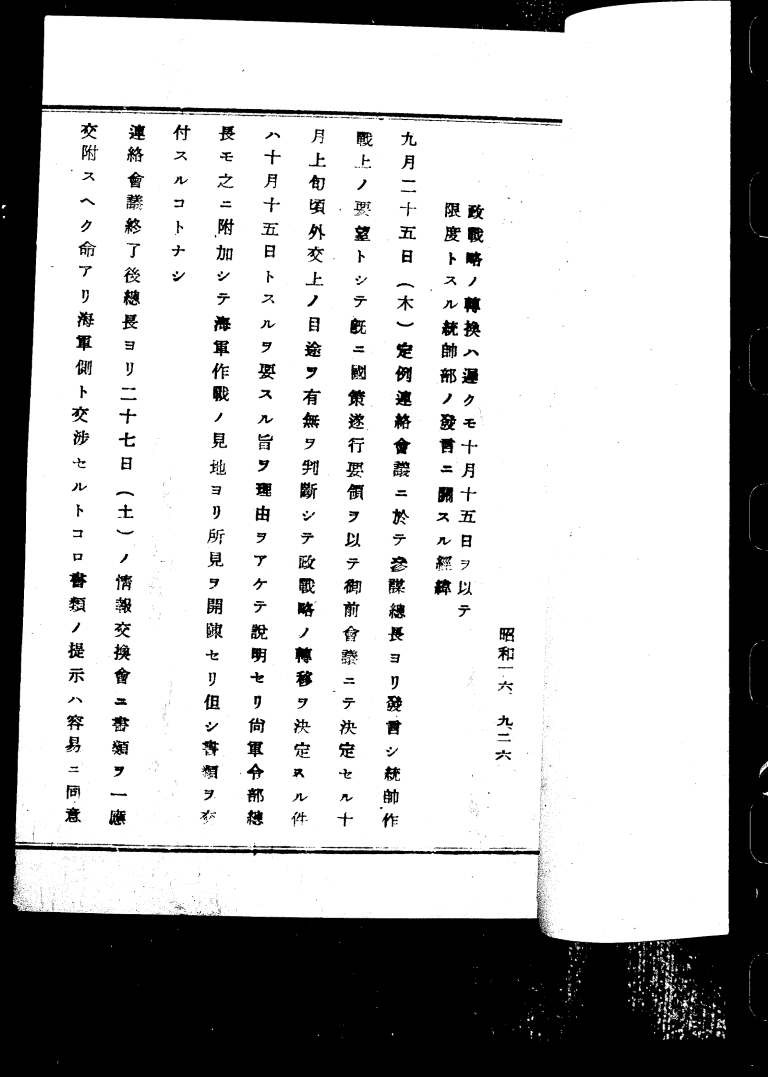 昭和一六、九、二六
政戰略ノ轉換ハ遲クモ十月十五日ヲ以テ
限度トスル統帥部ノ發言ニ關スル經緯
九月二十五日(木)定例連絡會議ニ於テ參謀總長ヨリ發言シ統帥作
戰上ノ要望トシテ既ニ國策遂行要領ヲ以テ御前會議ニテ決定セル十
月上旬頃外交上ノ目途ヲ有無ヲ判斷シテ政戰略ノ轉移ヲ決定スル件
ハ十月十五日トスルヲ要スル旨ヲ理由ヲアケテ說明セリ尙軍令部總
長モ之ニ附加シテ海軍作戰ノ見地ヨリ所見ヲ開陳セリ但シ書類ヲ交
付スルコトナシ
連絡會議終了後總長ヨリ二十七日(土)ノ情報交換會ニ書類ヲ一應
交附スヘク命アリ海軍側ト交涉セルトコロ書類ノ提示ハ容易ニ同意